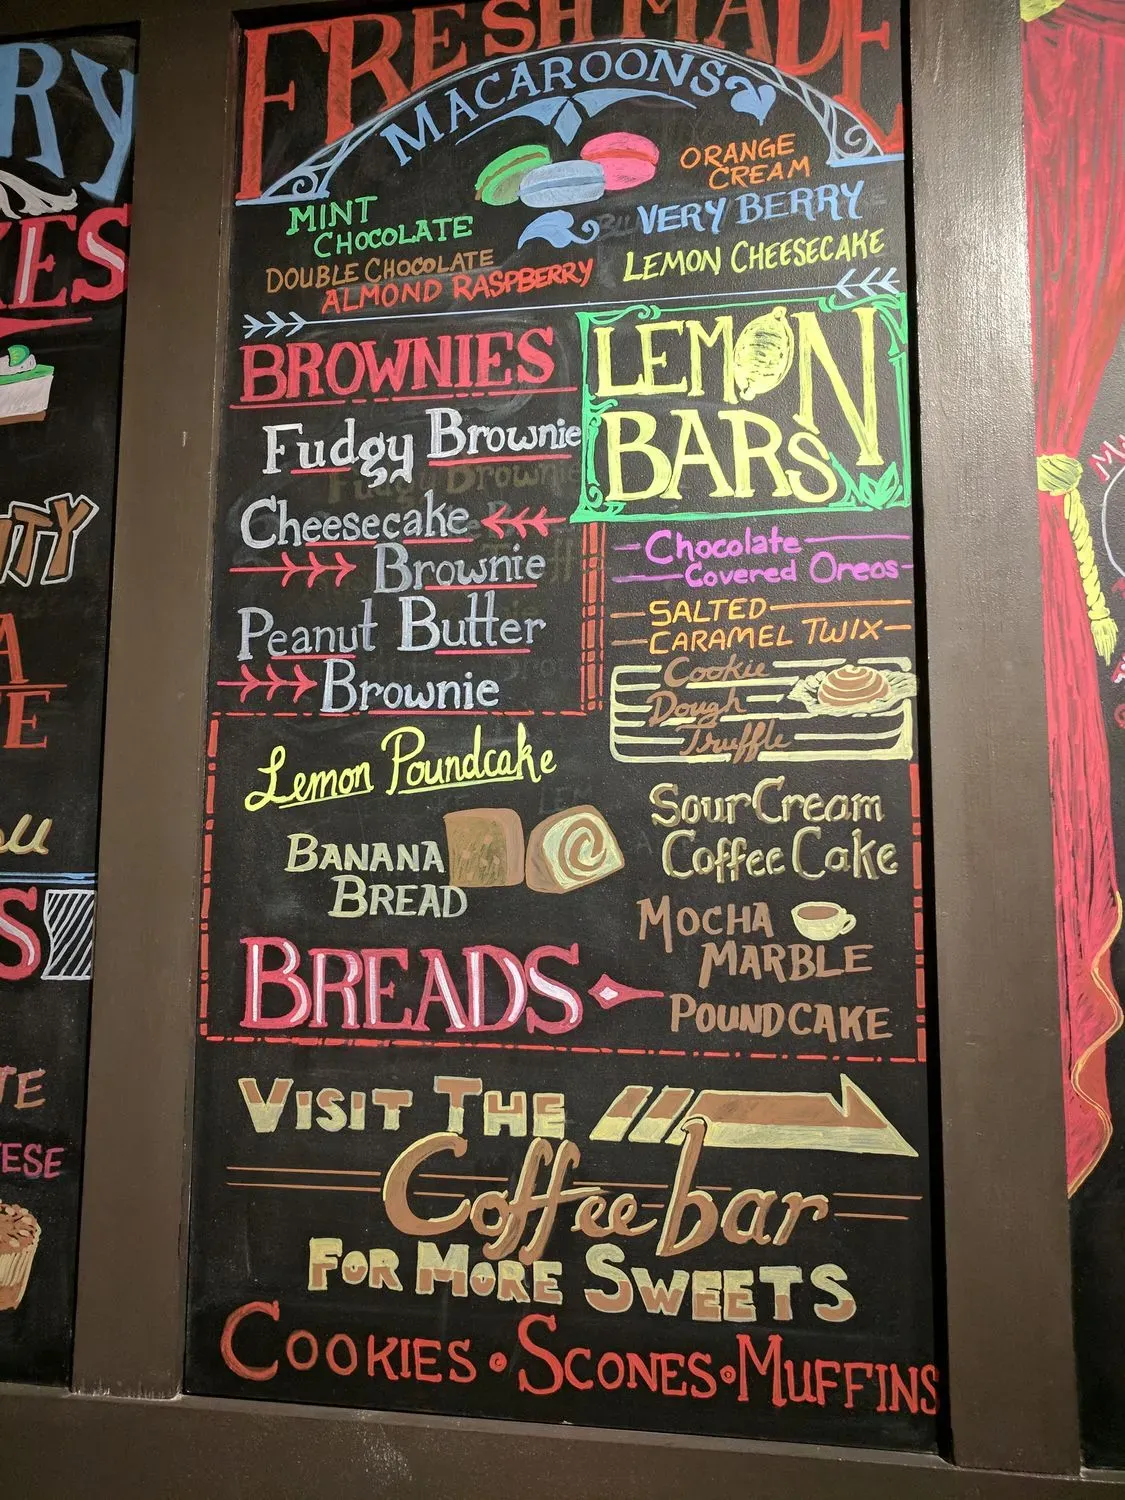 FRESH MADE
MACAROONS
MINT
CHOCOLATE
DOUBLE CHOCOLATE
ALMOND RASPBERRY
ORANGE
CREAM
VERY BERRY
LEMON CHEESECAKE
BROWNIES
Fudgy Brownie
Cheesecake
Brownie
Peanut Butter
Brownie
LEMON
BARS
Chocolate
Covered Oreos
SALTED
CARAMEL TWIX
Cookie
Dough
Truffle
Lemon Poundcake
BANANA
BREAD
BREADS
Sour Cream
Coffee Cake
MOCHA
MARBLE
POUNDCAKE
VISIT THE
Coffee bar
FOR MORE SWEETS
COOKIES • SCONES • MUFFINS
RY
KES
ITY
A
E
S
TE
ESE